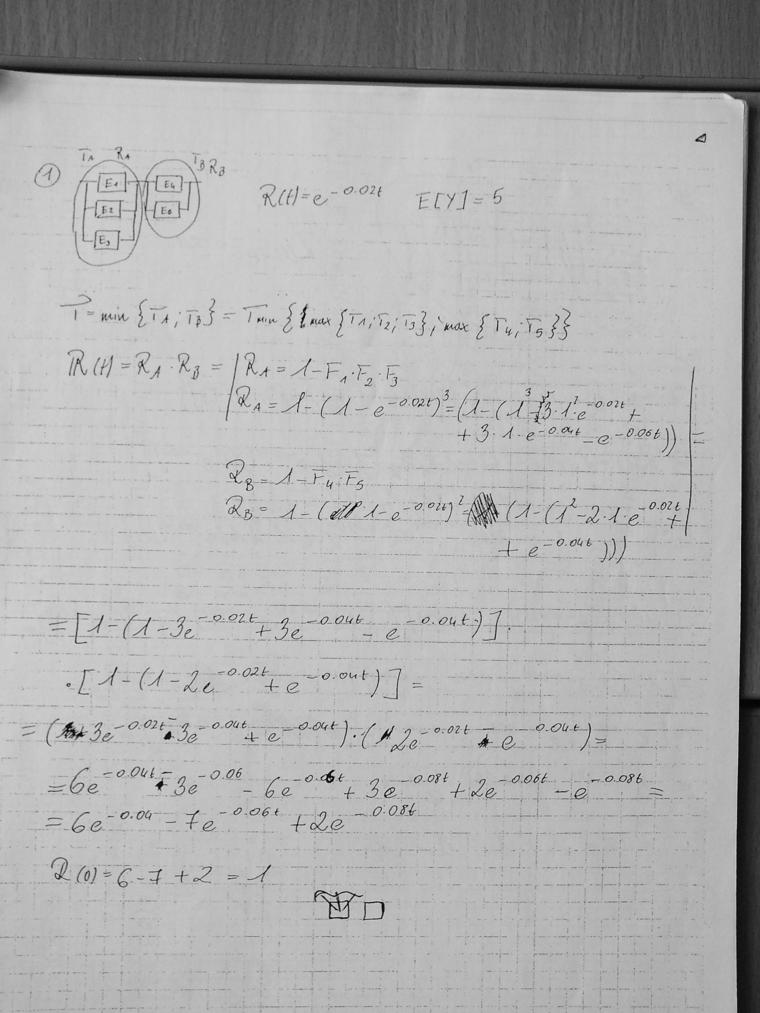 1
TA RA TB RB
E1 E4
E2 E5
E3
R(t)=e^{-0.02t} E[Y]=5
T=min{TA;TB}=Tmin{max{T1;T2;T3};max{T4;T5}}
R(t)=RA·RB= | RA=1-F1·F2·F3
RA=1-(1-e^{-0.02t})^3=(1-(1^3-3·1^2·e^{-0.02t}+
+3·1·e^{-0.04t}-e^{-0.06t})) | =
RB=1-F4·F5
RB=1-(1-e^{-0.02t})^2=(1-(1^2-2·1·e^{-0.02t}+
+e^{-0.04t})))
=[1-(1-3e^{-0.02t}+3e^{-0.04t}-e^{-0.04t})]·
·[1-(1-2e^{-0.02t}+e^{-0.04t})]=
=(3e^{-0.02t}-3e^{-0.04t}+e^{-0.04t})·(2e^{-0.02t}-e^{-0.04t})=
=6e^{-0.04t}-3e^{-0.06}-6e^{-0.06t}+3e^{-0.08t}+2e^{-0.06t}-e^{-0.08t}=
=6e^{-0.04}-7e^{-0.06t}+2e^{-0.08t}
R(0)=6-7+2=1